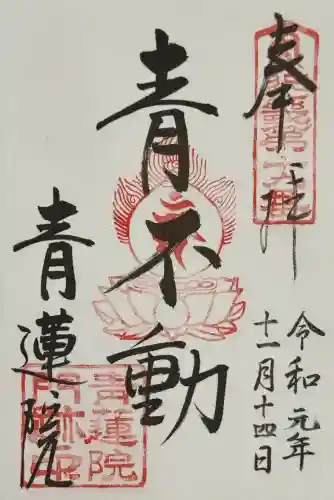 奉拝
令和元年
十一月十四日
青不動
青蓮院
青蓮院
門跡之印